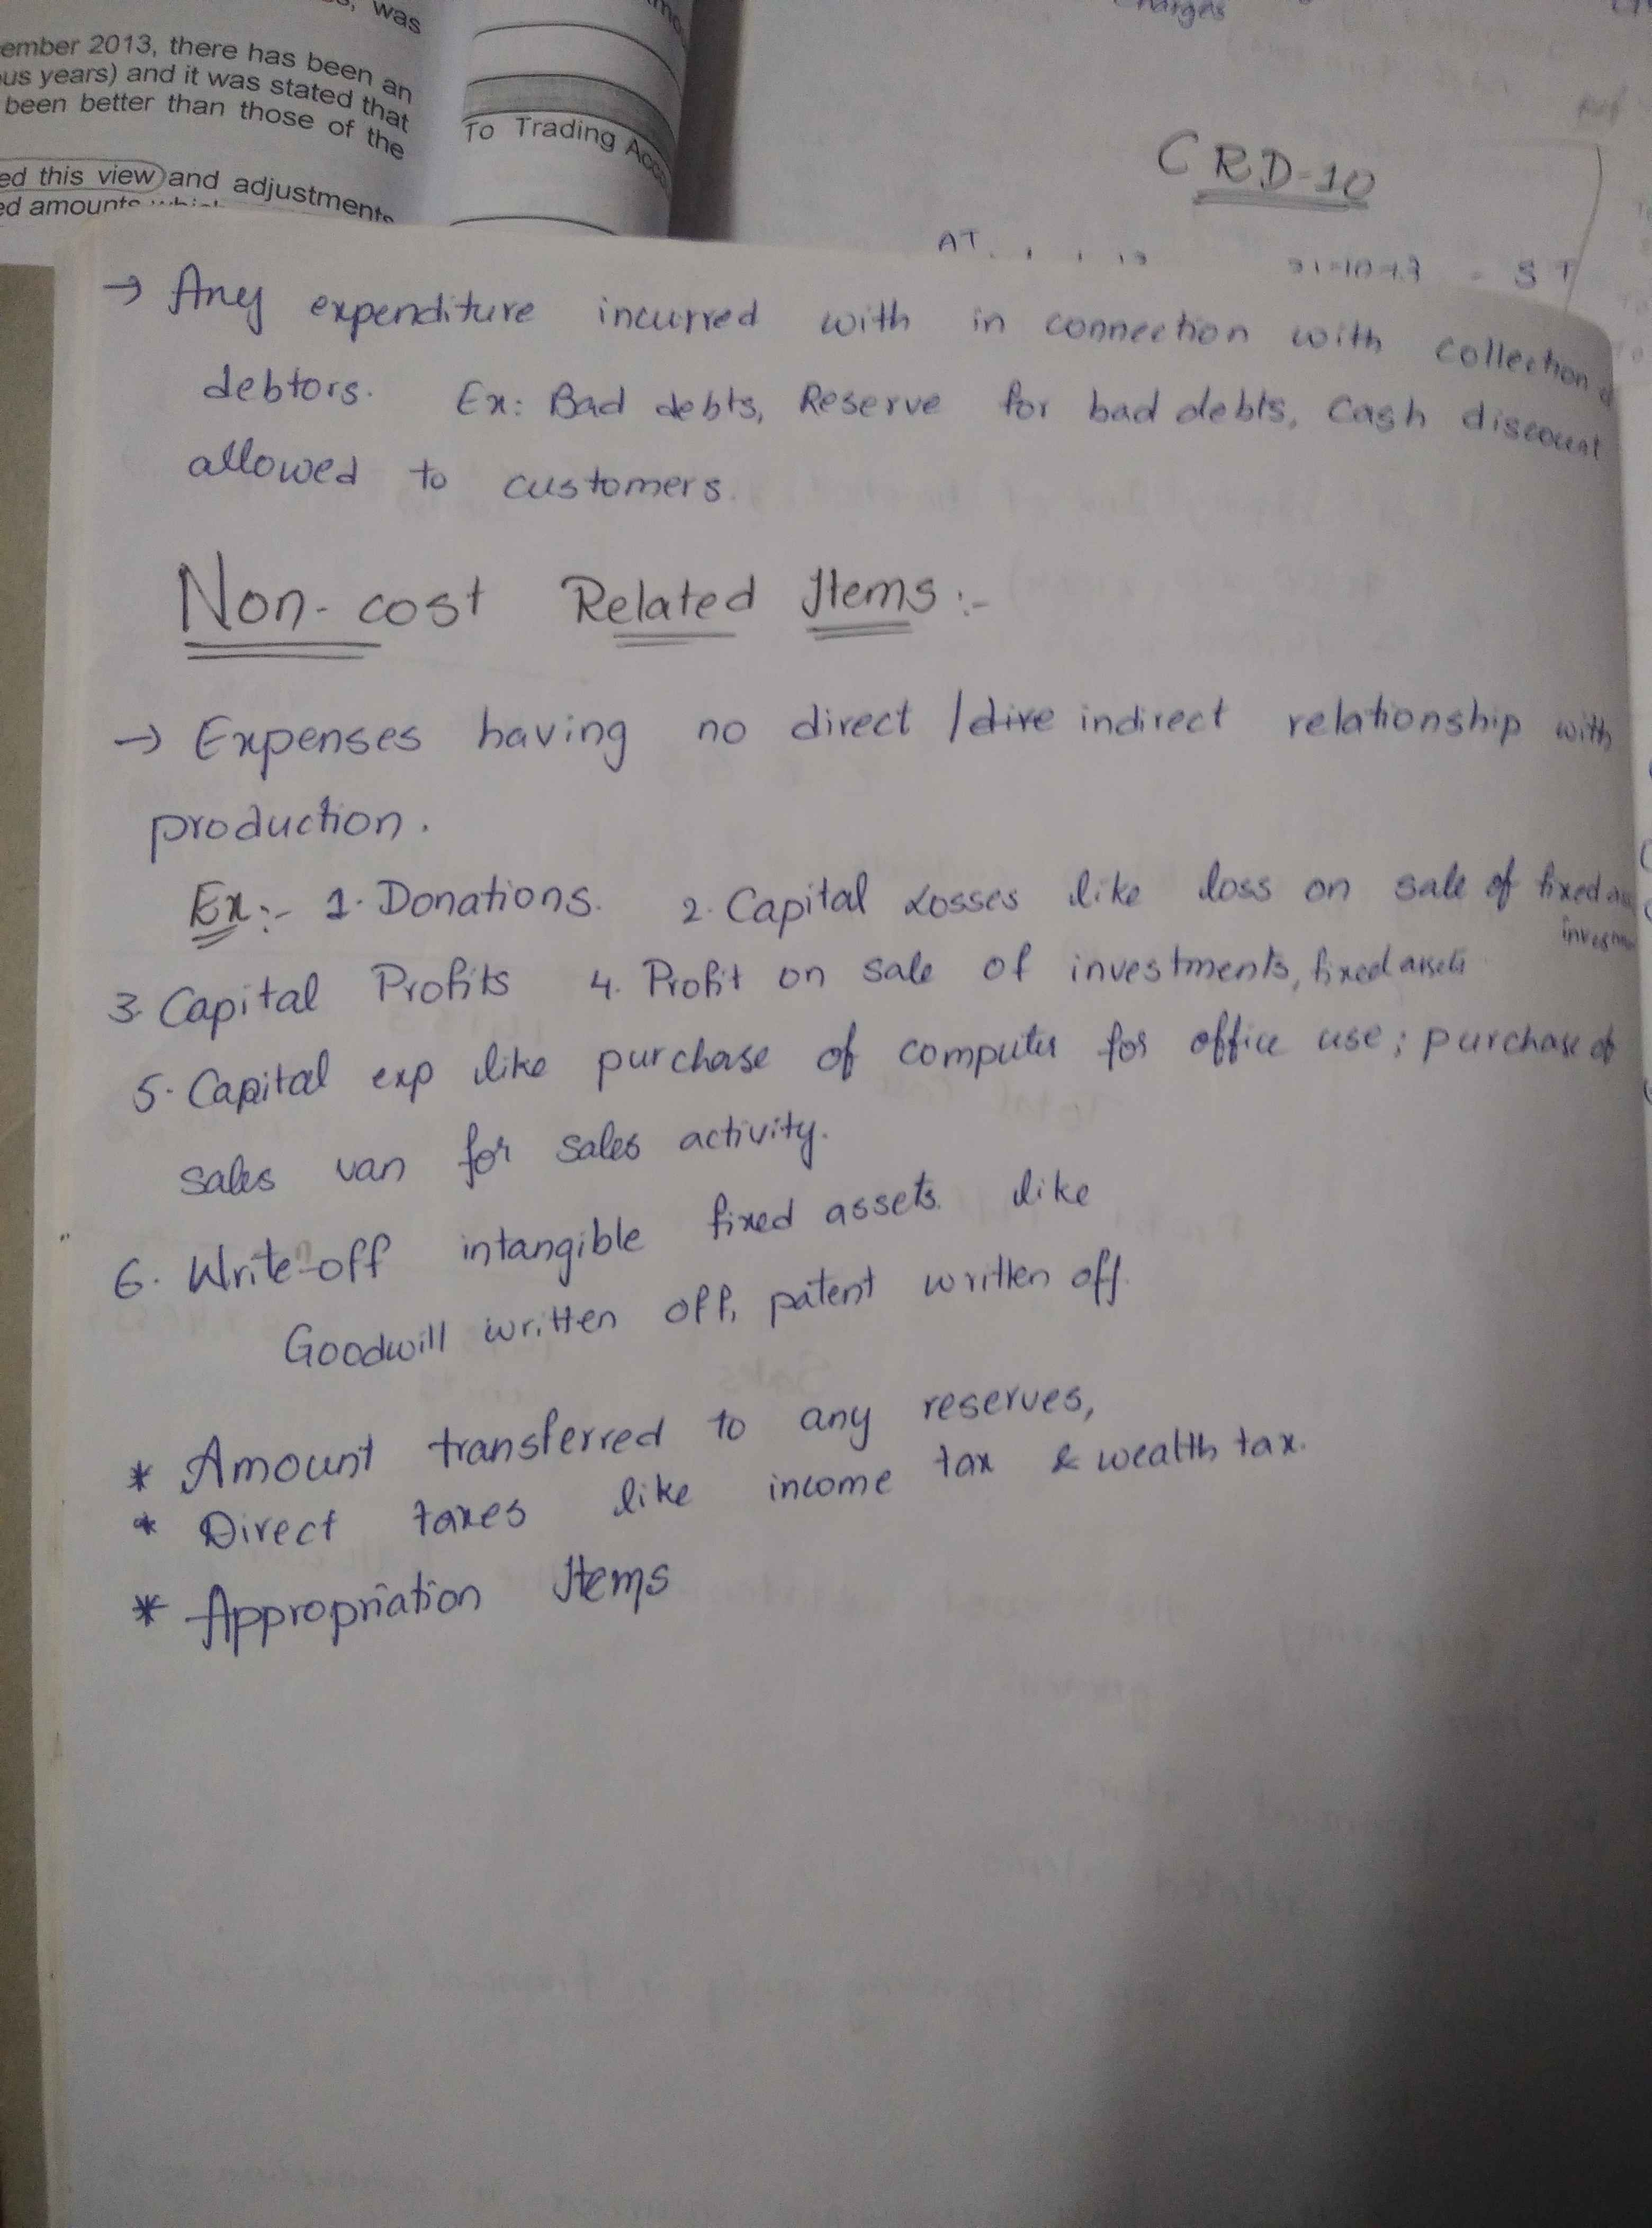 was
ember 2013, there has been an
us years) and it was stated that
been better than those of the
ed this view and adjustments
ed amounts
To Trading
CRD-10
AT
→ Any expenditure incurred with in connection with collection of
debtors. Ex: Bad debts, Reserve for bad debts, Cash discount
allowed to customers.
Non-cost Related Items:-
→ Expenses having no direct /dire indirect relationship with
production.
Ex:- 1. Donations. 2. Capital Losses like loss on sale of fixed
3. Capital Profits 4. Profit on sale of investments, fixed assets
5. Capital exp like purchase of computer for office use; purchase of
sales van for sales activity.
6. Write-off intangible fixed assets. like
Goodwill written off, patent written off.
* Amount transferred to any reserves,
* Direct taxes like income tax & wealth tax.
* Appropriation Items